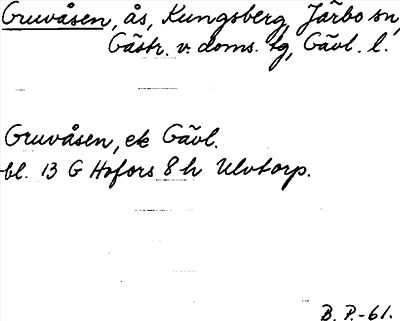 Gruvåsen, ås, Kungsberg, Järbo sn,
Gästr. v. doms. tg, Gävl. l.
Gruvåsen, ek Gävl.
bl. 13 G Hofors 8 h Ulvtorp.
B. P.-61.